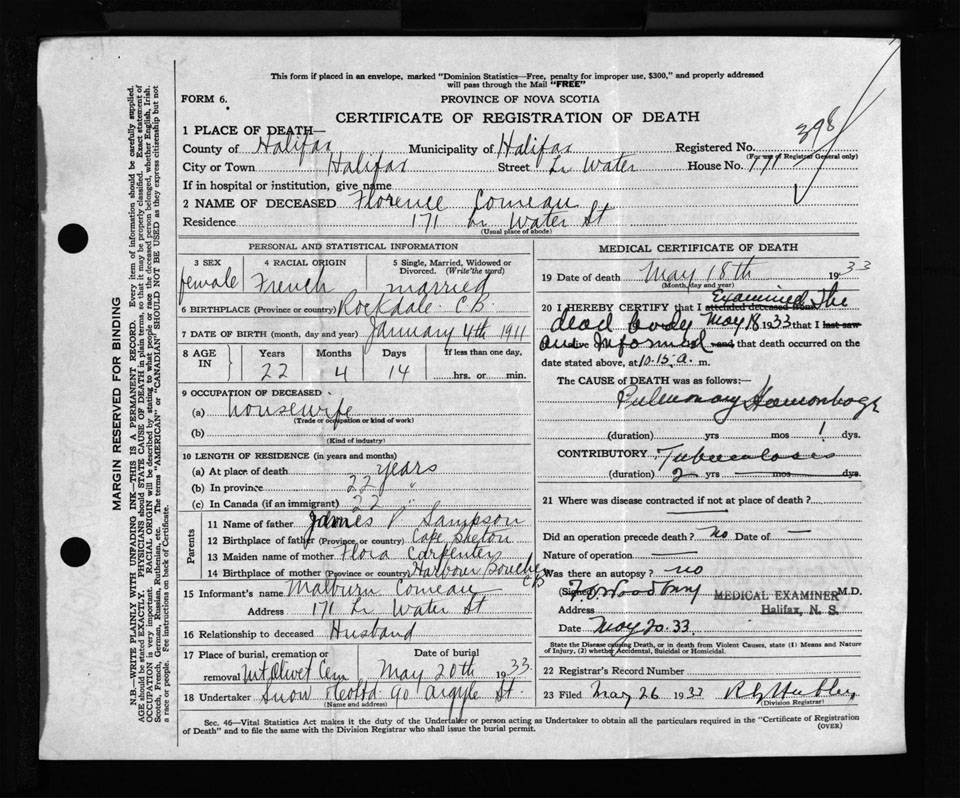 This form if placed in an envelope, marked "Dominion Statistics—Free, penalty for improper use, $300," and properly addressed
will pass through the Mail "FREE"
FORM 6.
PROVINCE OF NOVA SCOTIA
CERTIFICATE OF REGISTRATION OF DEATH
398
1 PLACE OF DEATH—
County of Halifax Municipality of Halifax Registered No.
(For use of Registrar General only)
City or Town Halifax Street Lr Water House No. 171
If in hospital or institution, give name
2 NAME OF DECEASED Florence Comeau
Residence 171 Lr Water St
(Usual place of abode)
PERSONAL AND STATISTICAL INFORMATION
3 SEX 4 RACIAL ORIGIN 5 Single, Married, Widowed or
Divorced. (Write the word)
female French married
6 BIRTHPLACE (Province or country) Rockdale C.B.
7 DATE OF BIRTH (month, day and year) January 4th 1911
8 AGE IN Years Months Days If less than one day,
22 4 14 hrs. or min.
9 OCCUPATION OF DECEASED
(a) housewife
(Trade or occupation or kind of work)
(b)
(Kind of industry)
10 LENGTH OF RESIDENCE (in years and months)
(a) At place of death years
(b) In province 22 "
(c) In Canada (if an immigrant) 22 "
Parents
11 Name of father James P Sampson
12 Birthplace of father (Province or country) Cape Breton
13 Maiden name of mother Flora Carpenter
14 Birthplace of mother (Province or country) Harbour Bouche C B
15 Informant's name Malburn Comeau
Address 171 Lr Water St
16 Relationship to deceased Husband
17 Place of burial, cremation or Date of burial
removal Mt Olivet Cem May 20th 1933
18 Undertaker Snow & Co Ltd 90 Argyle St.
(Name and address)
MEDICAL CERTIFICATE OF DEATH
19 Date of death May 18th 1933
(Month, day and year)
20 I HEREBY CERTIFY that I attended deceased from Examined The
dead body May 18 1933 that I last saw
alive on and Informed and that death occurred on the
date stated above, at 10.15 a. m.
The CAUSE OF DEATH was as follows:—
Pulmonary Haemorrhage
(duration) yrs mos 1 dys.
CONTRIBUTORY Tuberculosis
(duration) 2 yrs mos dys.
21 Where was disease contracted if not at place of death?
Did an operation precede death? no Date of —
Nature of operation —
Was there an autopsy? no
(Signed) M.D.
Address MEDICAL EXAMINER
Halifax, N. S.
Date May 20. 33.
State the Disease causing Death, or in death from Violent Causes, state (1) Means and Nature
of Injury, (2) whether Accidental, Suicidal or Homicidal.
22 Registrar's Record Number
23 Filed May 26 1933
(Division Registrar)
Sec. 46—Vital Statistics Act makes it the duty of the Undertaker or person acting as Undertaker to obtain all the particulars required in the "Certificate of Registration
of Death" and to file the same with the Division Registrar who shall issue the burial permit. (OVER)
MARGIN RESERVED FOR BINDING
N.B.—WRITE PLAINLY WITH UNFADING INK—THIS IS A PERMANENT RECORD. Every item of information should be carefully supplied.
AGE should be stated EXACTLY. PHYSICIANS should STATE CAUSE OF DEATH in plain terms, so that it may be properly classified. Exact statement of
OCCUPATION is very important. RACIAL ORIGIN will be described by stating to what people or race the deceased person belonged, whether English, Irish,
Scotch, French, German, Russian, Ruthenian, etc. The terms "AMERICAN" or "CANADIAN" SHOULD NOT BE USED as they express citizenship but not
a race or people. See instructions on back of Certificate.